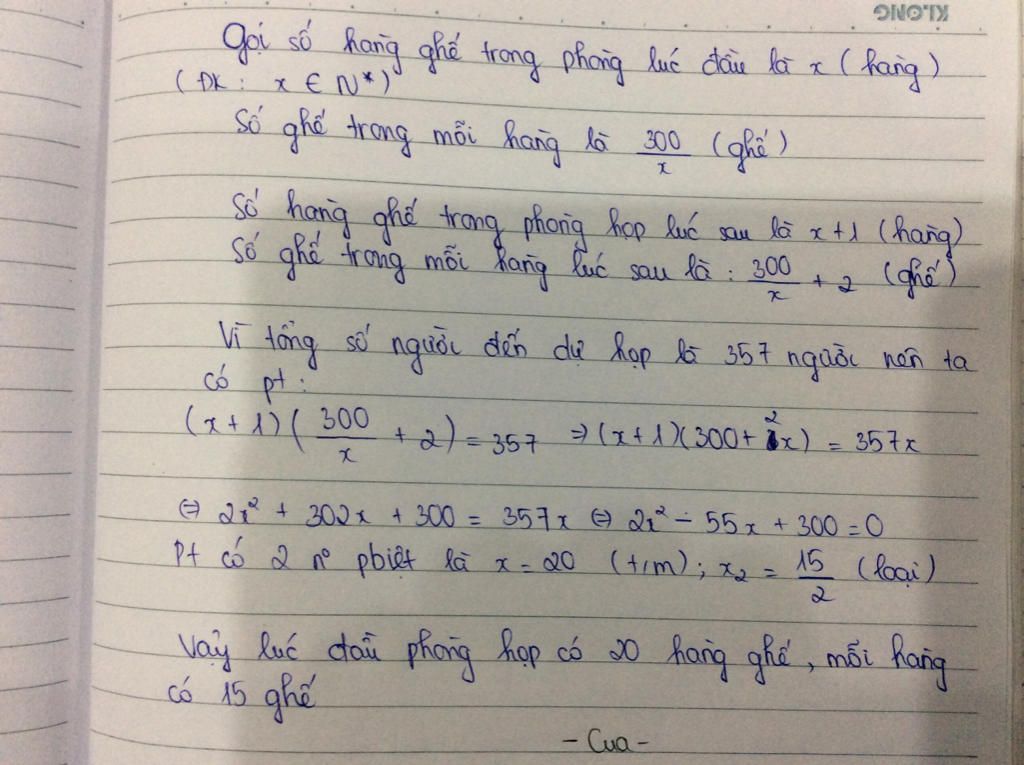 KLONG
Gọi số hàng ghế trong phòng lúc đầu là x (hàng)
(ĐK: x ∈ N*)
Số ghế trong mỗi hàng là 300/x (ghế)
Số hàng ghế trong phòng họp lúc sau là x+1 (hàng)
Số ghế trong mỗi hàng lúc sau là: 300/x + 2 (ghế)
Vì tổng số người đến dự họp là 357 người nên ta
có pt:
(x+1)(300/x + 2) = 357 ⇒ (x+1)(300+2x) = 357x
⇔ 2x² + 302x + 300 = 357x ⇔ 2x² - 55x + 300 = 0
Pt có 2 nº pbiệt là x = 20 (t/m); x₂ = 15/2 (loại)
Vậy lúc đầu phòng họp có 20 hàng ghế, mỗi hàng
có 15 ghế
- Cua -